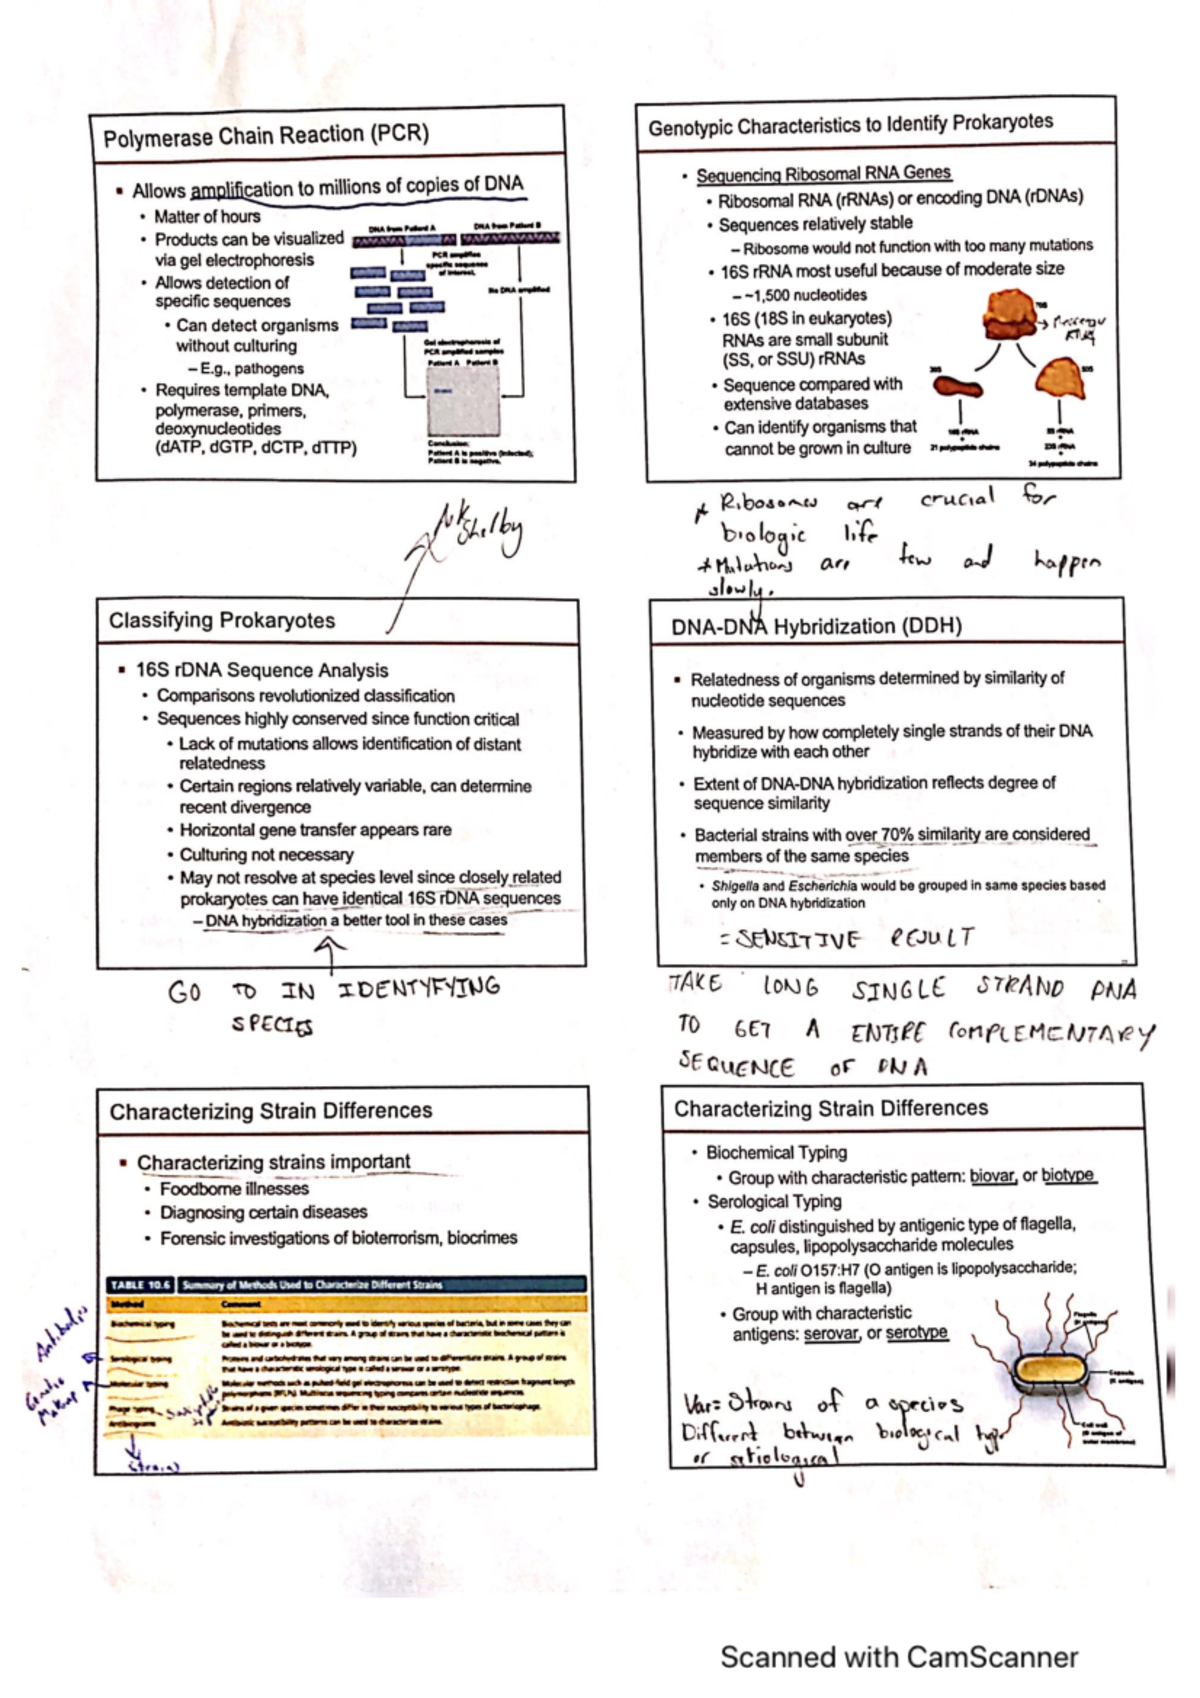 Polymerase Chain Reaction (PCR)
▪ Allows amplification to millions of copies of DNA
• Matter of hours
• Products can be visualized
via gel electrophoresis
• Allows detection of
specific sequences
• Can detect organisms
without culturing
– E.g., pathogens
• Requires template DNA,
polymerase, primers,
deoxynucleotides
(dATP, dGTP, dCTP, dTTP)
DNA from Patient A
DNA from Patient B
PCR amplifies
specific sequence
of interest.
No DNA amplified
Gel electrophoresis of
PCR amplified samples
Patient A Patient B
Conclusion:
Patient A is positive (infected);
Patient B is negative.
Shelby
Genotypic Characteristics to Identify Prokaryotes
• Sequencing Ribosomal RNA Genes
• Ribosomal RNA (rRNAs) or encoding DNA (rDNAs)
• Sequences relatively stable
– Ribosome would not function with too many mutations
• 16S rRNA most useful because of moderate size
– ~1,500 nucleotides
• 16S (18S in eukaryotes)
RNAs are small subunit
(SS, or SSU) rRNAs
• Sequence compared with
extensive databases
• Can identify organisms that
cannot be grown in culture
70S
30S
50S
16S rRNA
+
21 polypeptide chains
5S rRNA
+
23S rRNA
+
34 polypeptide chains
* Ribosomes are crucial for
biologic life
* Mutations are few and happen
slowly.
Classifying Prokaryotes
▪ 16S rDNA Sequence Analysis
• Comparisons revolutionized classification
• Sequences highly conserved since function critical
• Lack of mutations allows identification of distant
relatedness
• Certain regions relatively variable, can determine
recent divergence
• Horizontal gene transfer appears rare
• Culturing not necessary
• May not resolve at species level since closely related
prokaryotes can have identical 16S rDNA sequences
– DNA hybridization a better tool in these cases
GO TO IN IDENTYFYING
SPECIES
DNA-DNA Hybridization (DDH)
▪ Relatedness of organisms determined by similarity of
nucleotide sequences
• Measured by how completely single strands of their DNA
hybridize with each other
• Extent of DNA-DNA hybridization reflects degree of
sequence similarity
• Bacterial strains with over 70% similarity are considered
members of the same species
• Shigella and Escherichia would be grouped in same species based
only on DNA hybridization
= SENSITIVE RESULT
TAKE LONG SINGLE STRAND DNA
TO GET A ENTIRE COMPLEMENTARY
SEQUENCE OF DNA
Characterizing Strain Differences
▪ Characterizing strains important
• Foodborne illnesses
• Diagnosing certain diseases
• Forensic investigations of bioterrorism, biocrimes
TABLE 10.6 Summary of Methods Used to Characterize Different Strains
Method Comment
Biochemical typing Biochemical tests are most commonly used to identify various species of bacteria, but in some cases they can
be used to distinguish different strains. A group of strains that have a characteristic biochemical pattern is
called a biovar or a biotype.
Serological typing Proteins and carbohydrates that vary among strains can be used to differentiate strains. A group of strains
that have a characteristic serological type is called a serovar or a serotype.
Molecular typing Molecular methods such as pulsed-field gel electrophoresis can be used to detect restriction fragment length
polymorphisms (RFLPs). Multilocus sequencing typing compares certain nucleotide sequences.
Phage typing Strains of a given species sometimes differ in their susceptibility to various types of bacteriophage.
Antibiograms Antibiotic susceptibility patterns can be used to characterize strains.
Genetic
Makeup
Characterizing Strain Differences
• Biochemical Typing
• Group with characteristic pattern: biovar, or biotype
• Serological Typing
• E. coli distinguished by antigenic type of flagella,
capsules, lipopolysaccharide molecules
– E. coli O157:H7 (O antigen is lipopolysaccharide;
H antigen is flagella)
• Group with characteristic
antigens: serovar, or serotype
Flagella
(H antigens)
Capsule
(K antigens)
Cell wall
(O antigen of
outer membrane)
Var= Strains of a species
Different between biological type
or
Scanned with CamScanner